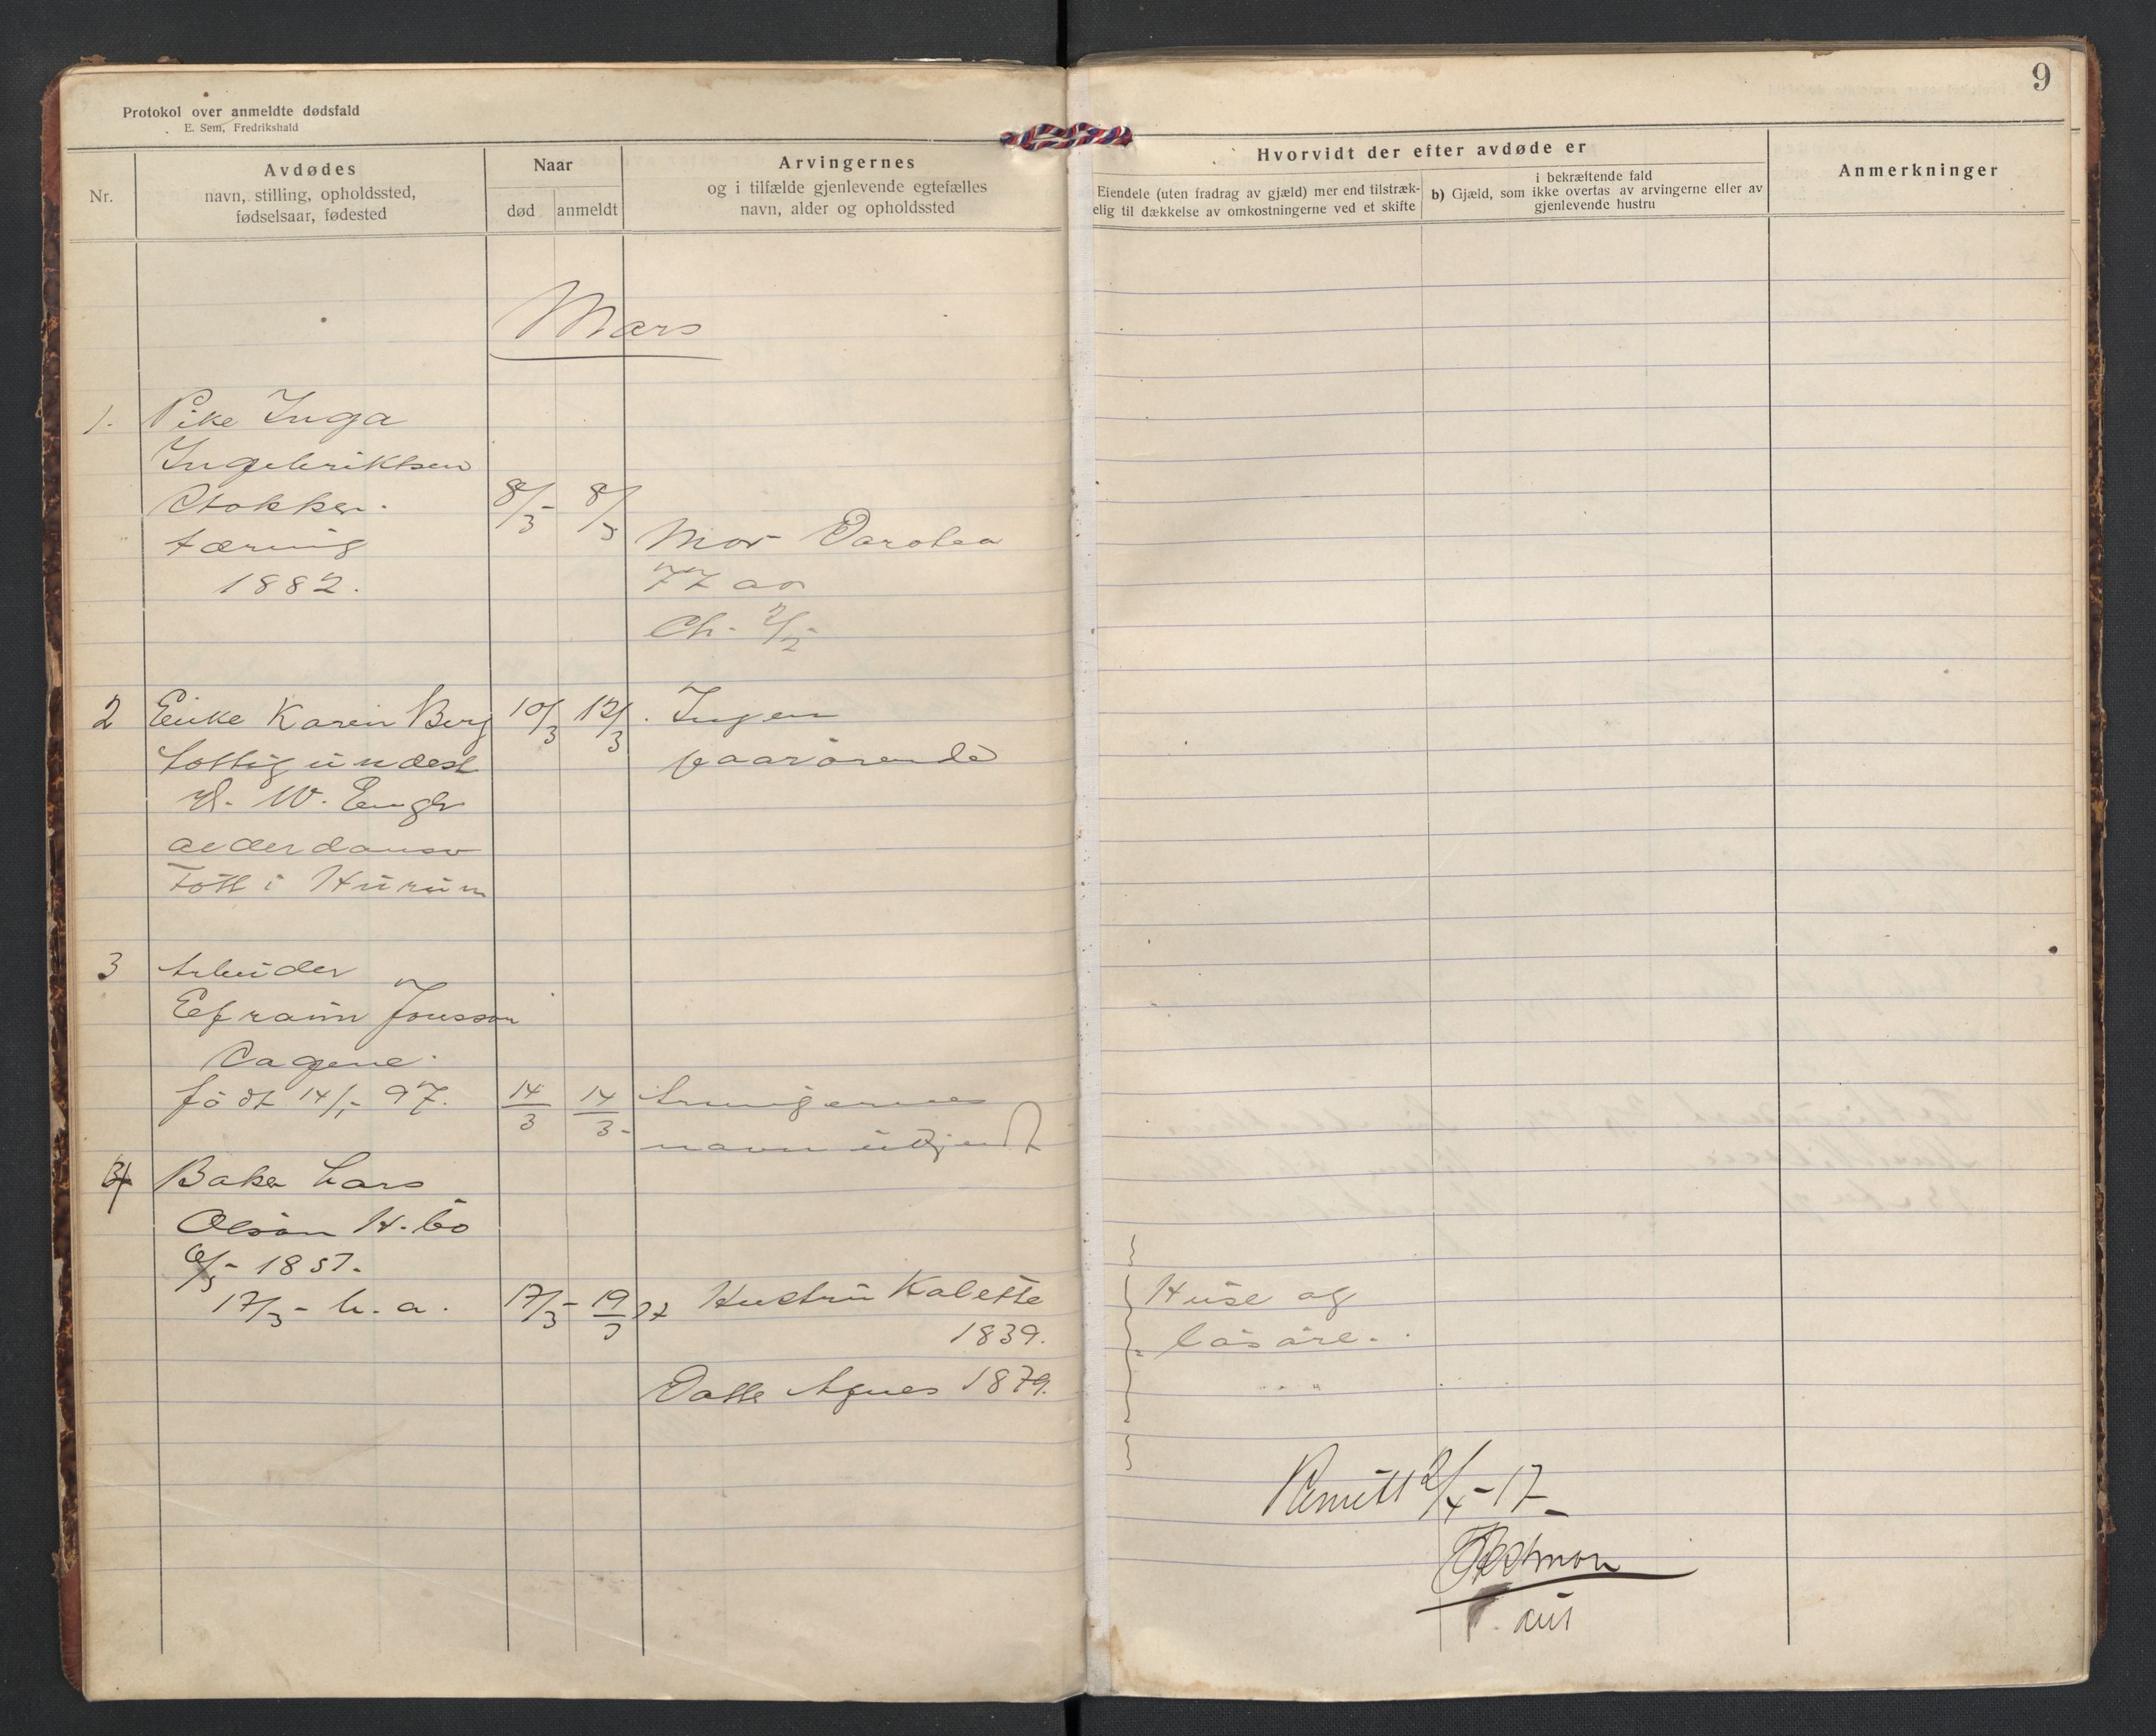 Protokol over anmeldte dødsfald
E. Sem, Fredrikshald
9
Nr.
Avdødes
navn, stilling, opholdssted,
fødselsaar, fødested
Naar
død anmeldt
Arvingernes
og i tilfælde gjenlevende egtefælles
navn, alder og opholdssted
Hvorvidt der efter avdøde er
Eiendele (uten fradrag av gjæld) mer end tilstræk-
elig til dækkelse av omkostningerne ved et skifte
i bekræftende fald
b) Gjæld, som ikke overtas av arvingerne eller av
gjenlevende hustru
Anmerkninger
Mars
1. Pike Inga
Ingebriktsen
Stokker.
tæring
1882.
8/3 8/3
Mor Dorotea
77 aar
Ch. 2/2
2 Enke Karen Berg 10/3 12/3 Ingen
fattigunderst paarørende
Født i Hurum
3 Arbeider
Efraim Jonsson
født 14/1 97. 14/3 14/3 Arvingernes
navn ukjendt
4 Baker Lars
Olsøn H. bö
6/5 1857.
17/3 - h. a. 17/3 - 19/3 Hustru Kalette
1839.
Datter Agnes 1879.
Huse og
løsøre.
2/4 - 17